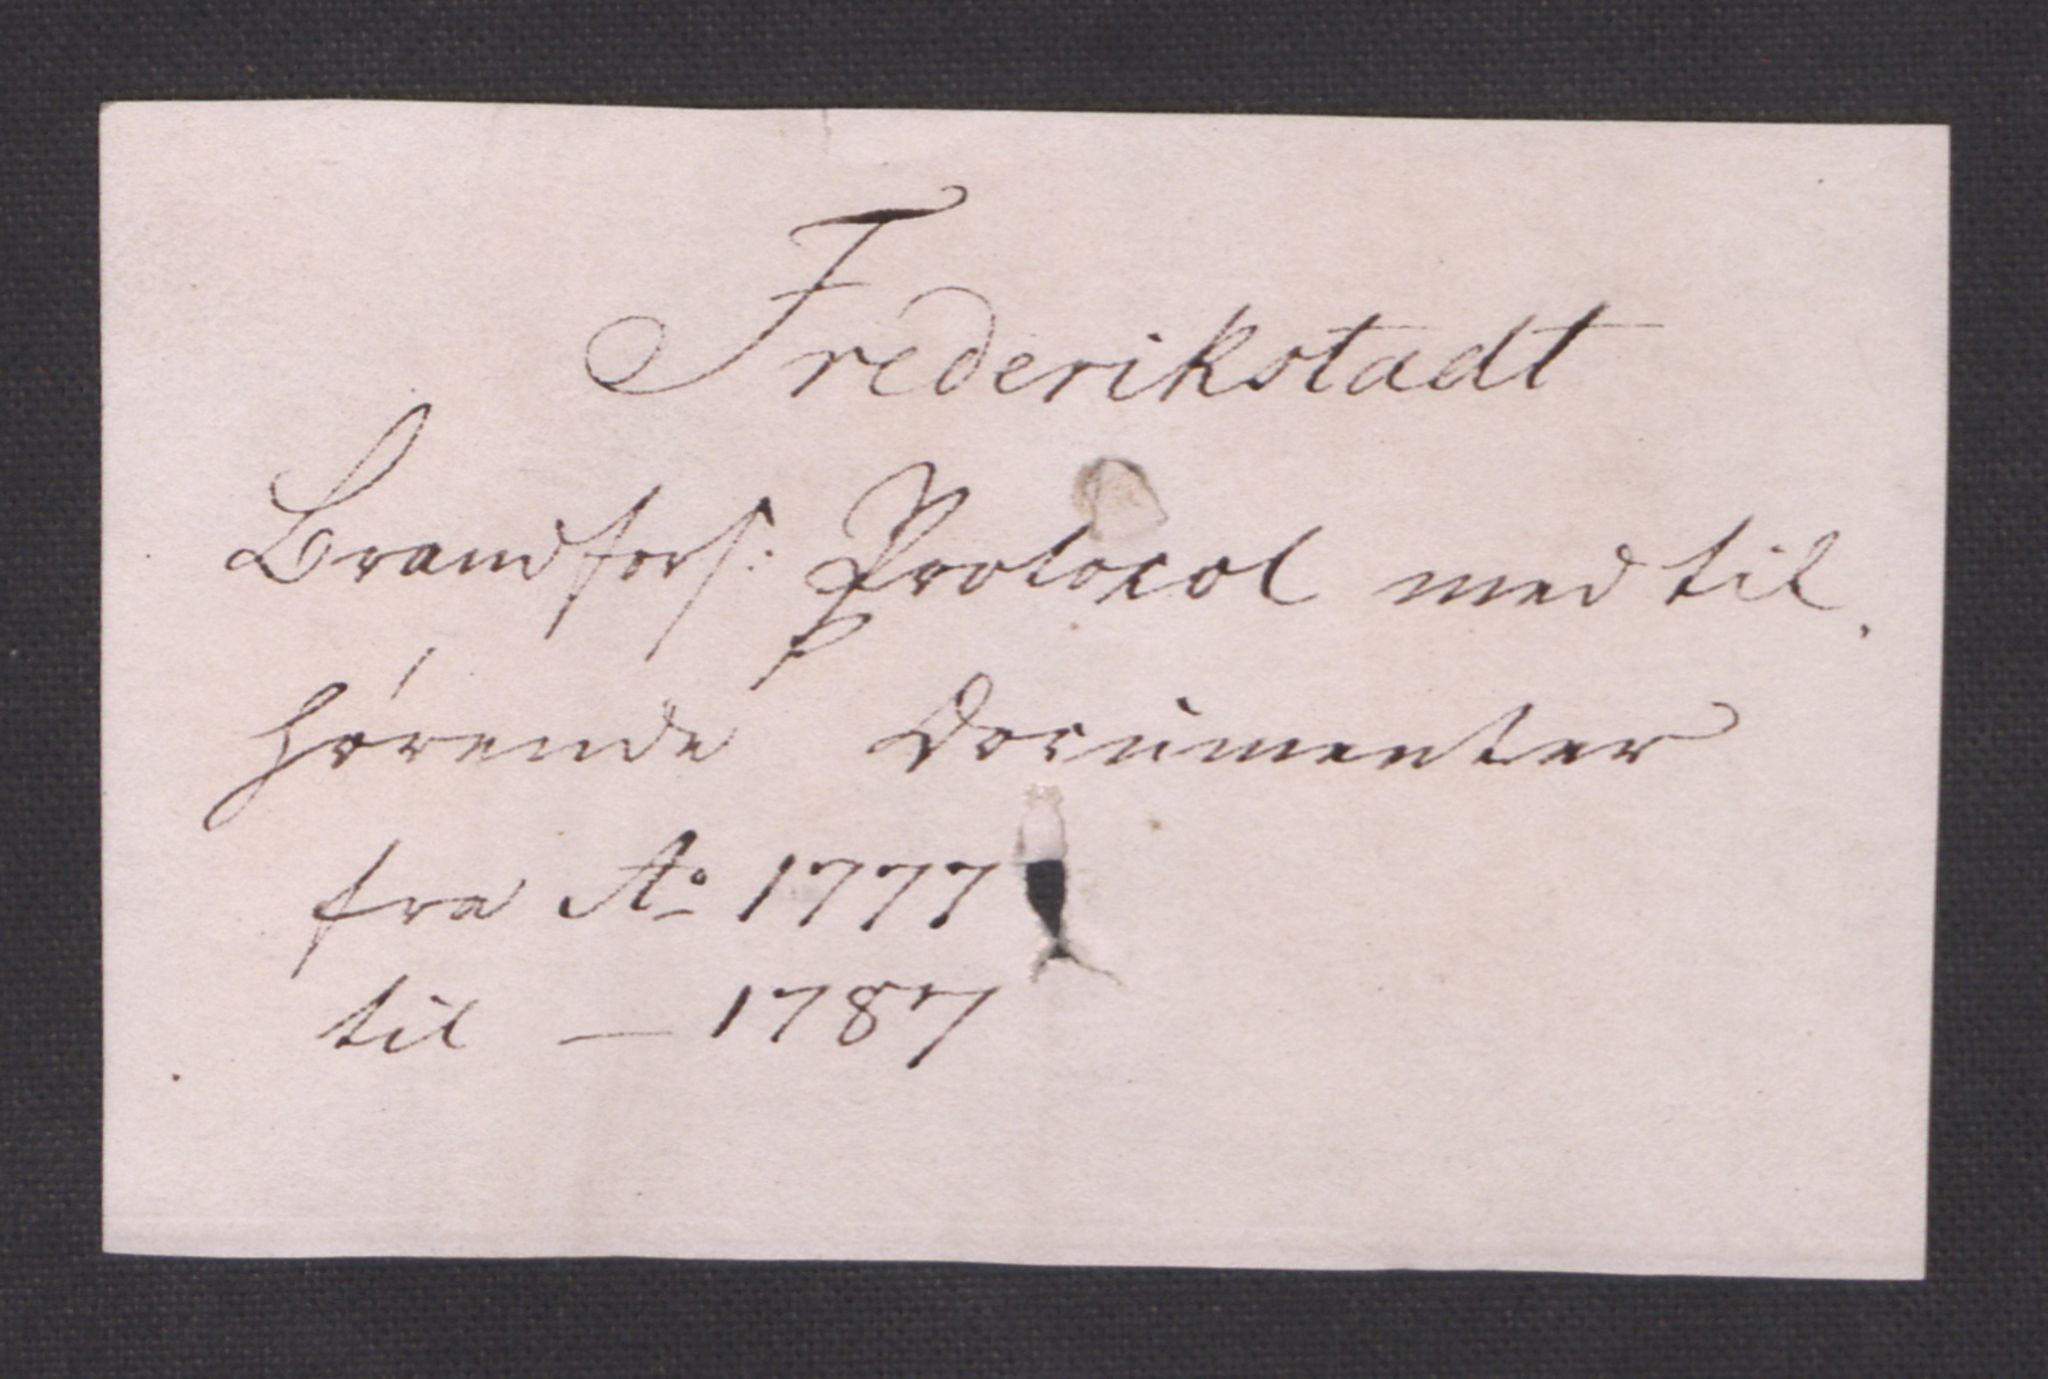 Frederikstadt
Brandfors: Protocol med til,
hørende Documenter
fra Ao 1777
til — 1787